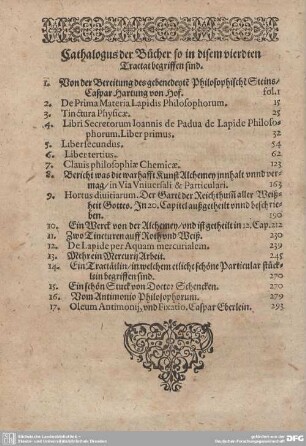 Cathalogus der Bücher so in disem vierdten
Tractat begriffen sind.
1. Von der Bereitung des gebenedeytē Philosophischē Steins
Caspar Hartung von Hof. fol.1
2. De Prima Materia Lapidis Philosophorum. 15
3. Tinctura Physica. 25
4. Libri Secretorum Ioannis de Padua de Lapide Philoso-
phorum. Liber primus. 32
5. Liber secundus. 54
6. Liber tertius. 62
7. Clavis philosophiæ Chemicæ. 123
8. Bericht was die warhafft Kunst Alchemey innhalt vnnd ver-
mag / in Via Vniuersali & Particulari. 163
9. Hortus diuitiarum. Der Gart der Reichthum̄ aller Weiß-
heit Gottes. In 20. Capitel außgetheilt vnnd beschrie-
ben. 190
10. Ein Werck von der Alchemey / vnd ist getheilt in 12. Cap. 212
11. Zwo Tincturen auff Roth vnd Weiß. 230
12. De Lapide per Aquam mercurialem. 239
13. Mehr ein Mercurij Arbeit. 245
14. Ein Tractätlin / in welchem etlicht schöne Particular stück-
lin begriffen sind. 270
15. Ein schön Stuck von Doctor Schencken. 270
16. Vom Antimonio Philosophorum. 279
17. Oleum Antimonij, vnd Fixatio, Caspar Eberlein. 293